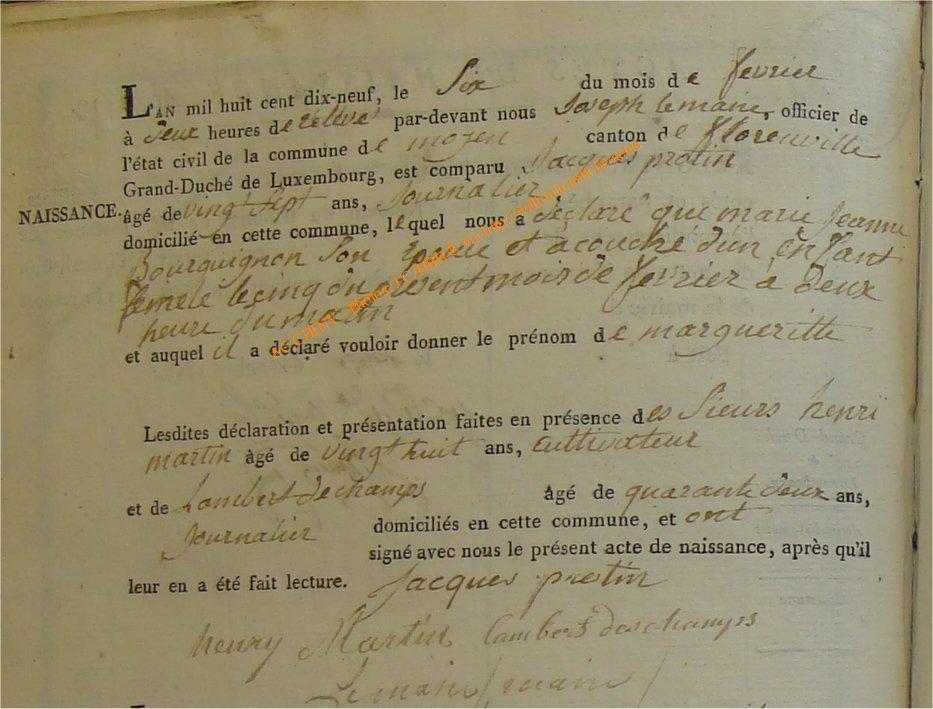 L'AN mil huit cent dix-neuf, le Six du mois de fevrier
à deux heures de relevé par-devant nous Joseph lemaire, officier de
l'état civil de la commune de moyen canton de florenville
Grand-Duché de Luxembourg, est comparu Jacques protin
NAISSANCE. âgé de vingt Sept ans, Journalier
domicilié en cette commune, lequel nous a déclaré que marie Jeanne
Bourguignon Son epouse et acouché d'un enfant
femele le cinq du present mois de fevrier a deux
heure du matin
et auquel il a déclaré vouloir donner le prénom de margueritte
Lesdites déclaration et présentation faites en présence des Sieurs henri
martin âgé de vingt huit ans, cultivateur
et de Lambert dechamps âgé de quarante deux ans,
Journalier domiciliés en cette commune, et ont
signé avec nous le présent acte de naissance, après qu'il
leur en a été fait lecture. Jacques protin
henry Martin lambert deschamps
Lemaire maire